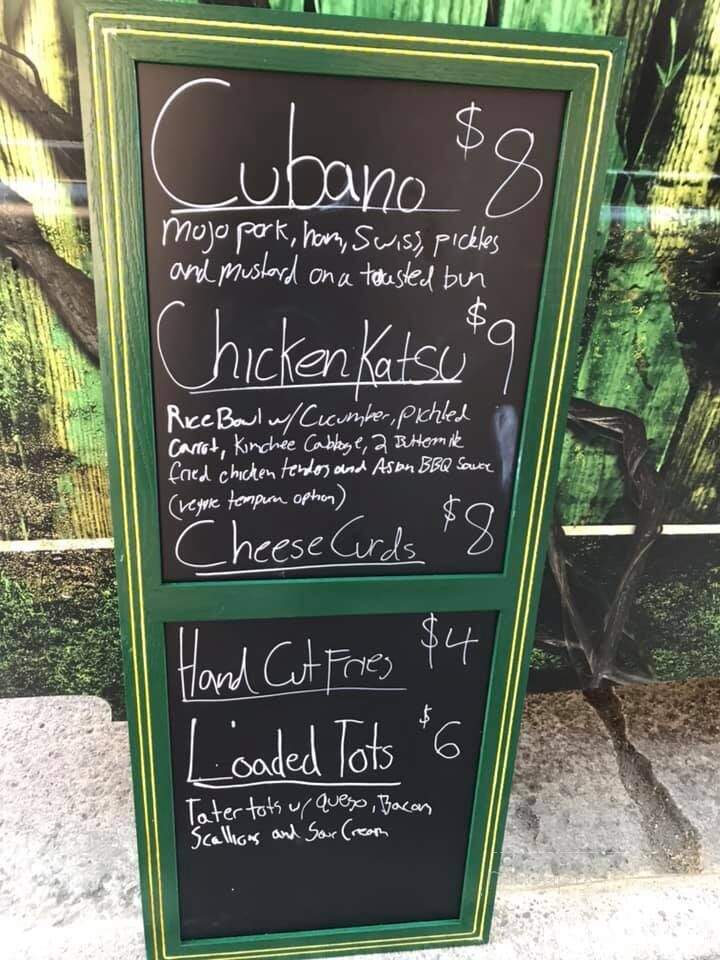 Cubano $8
Mojo pork, ham, Swiss, pickles
and mustard on a toasted bun
Chicken Katsu $9
Rice Bowl w/ Cucumber, pickled
Carrot, Kimchee Cabbage, 2 Buttermilk
fried chicken tenders and Asian BBQ Sauce
(veggie tempura option)
Cheese Curds $8
Hand Cut Fries $4
Loaded Tots $6
Tater tots w/ queso, Bacon
Scallions and Sour Cream